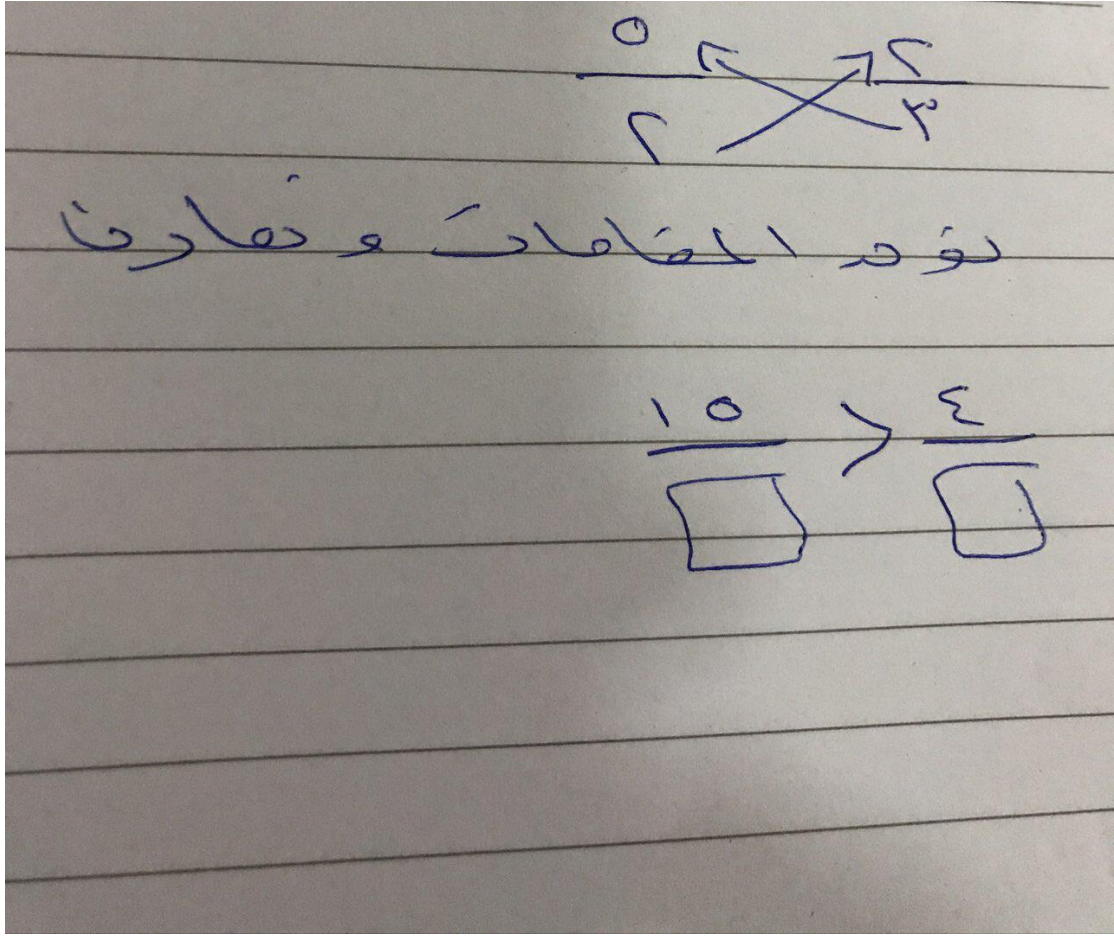 ٢ ٥
٣ ٢
نوحد المقامات ونقارن
٤ > ١٥